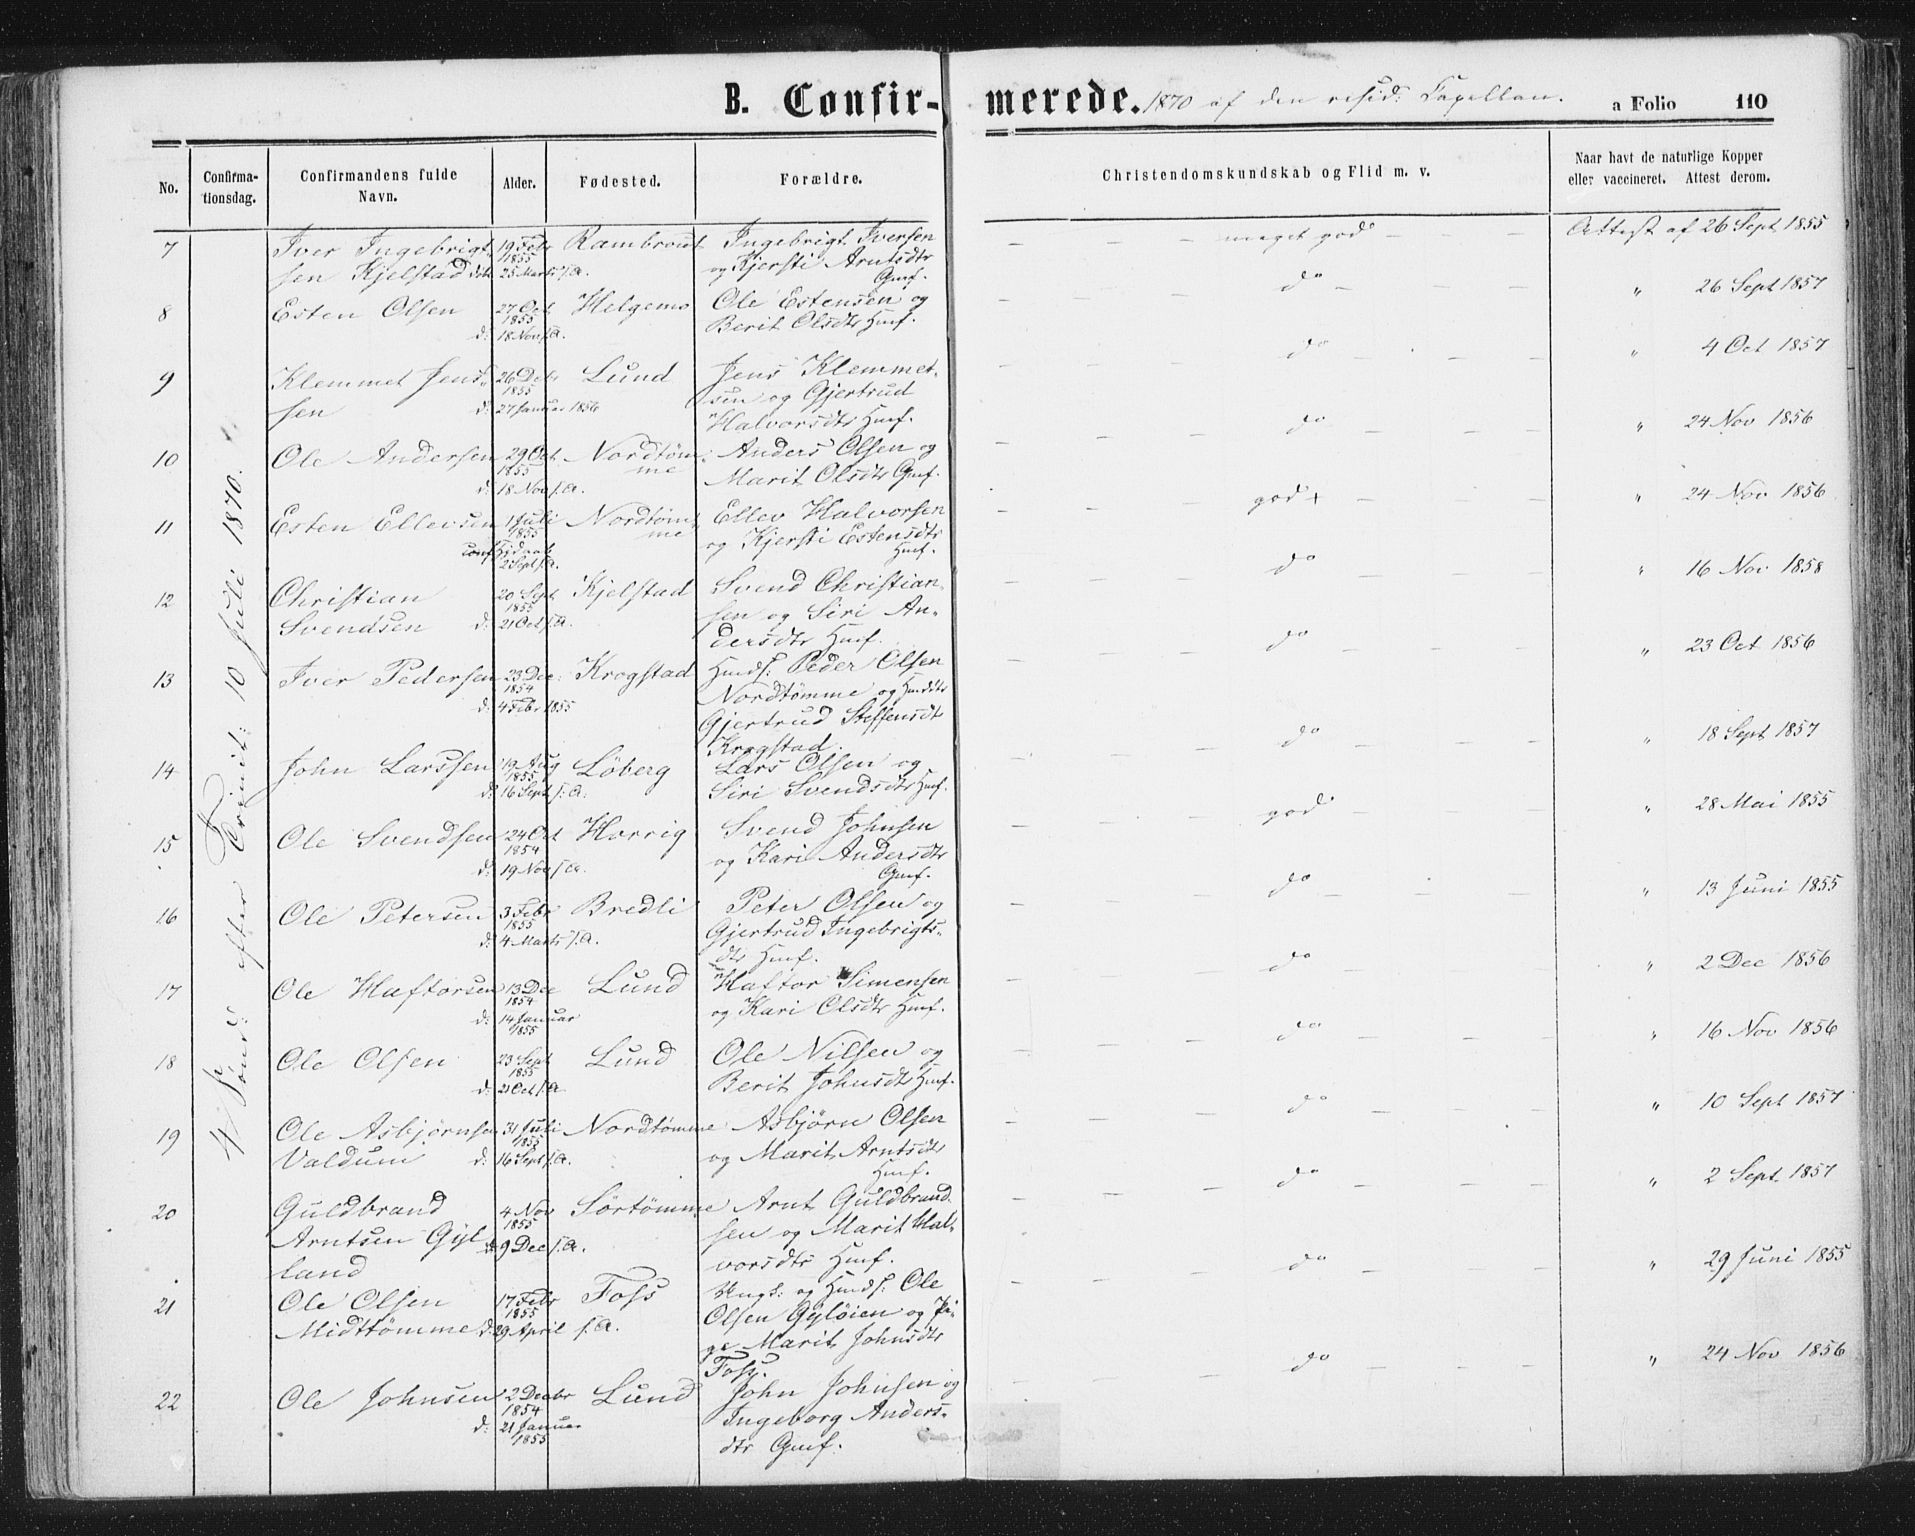 B. Confirmerede. 1870 af den resid: Capellan. a Folio 110
No. Confirmationsdag. Confirmandens fulde Navn. Alder. Fødested. Forældre. Christendomskundskab og Flid m. v. Naar havt de naturlige Kopper eller vaccineret. Attest derom.
4 Sønd: efter Trinit: 10 Juli 1870.
7 Iver Ingebrigt- 19 Febr Rambraut Ingebrigt Iversen — — — meget god — — — Attest af 26 Sept 1855
sen Kjelstad døbt 1855 25 Marts s.A. og Kjersti Arntsdtr
Gmf.
8 Esten Olsen 27 Oct Helgemo Ole Estensen og — — — do — — — " 26 Sept 1857
1855 Berit Olsdtr Hmf.
d: 18 Nov s.A.
9 Klemmet Jens- 26 Debr Lund Jens Klemmet- — — — do — — — " 4 Oct 1857
sen 1855 sen og Gjertrud
d: 27 Januar 1856 Halvorsdtr Hmf.
10 Ole Andersen 29 Oct Nordtøm- Anders Olsen og — — — do — — — " 24 Nov 1856
1855 me Marit Olsdtr Gmf.
d: 18 Nov s.A.
11 Esten Ellevsen 1 Juli Nordtøm- Ellev Halvorsen — — — god + — — — " 24 Nov 1856
1855 me og Kjersti Estensdtr
conf. Hjdaab 2 Sept s.A. Hmf.
12 Christian 20 Sept Kjelstad Svend Christian- — — — do — — — " 16 Nov 1858
1855 sen og Siri An-
Svendsen d: 21 Oct s.A. dersdtr Hmf.
13 Iver Pedersen 23 Dec: Krogstad Hmds: Peder Olsen — — — do — — — " 23 Oct 1856
1854 Nordtømme og Hmddtr
d: 4 Febr 1855 Gjertrud Steffensdtr
Krogstad.
14 John Larssen 19 Aug Løberg Lars Olsen og — — — do — — — " 18 Sept 1857
1855 Siri Svendsdtr Hmf.
d: 16 Sept s:A:
15 Ole Svendsen 24 Oct Horrig Svend Johnsen — — — god — — — " 28 Mai 1855
1854 og Kari Andersdtr
d: 19 Nov s.A. Gmf.
16 Ole Petersen 3 Febr Bredli Peter Olsen og — — — do — — — " 13 Juni 1855
1855 Gjertrud Ingebrigts-
d: 4 Marts s.A. dtr Hmf.
17 Ole Haftorsen 13 Dec Lund Haftor Simensen — — — do — — — " 2 Dec 1856
1854 og Kari Olsdtr Hmf.
d: 14 Januar
1855
18 Ole Olsen 23 Sept Lund Ole Nilsen og — — — do — — — " 16 Nov 1856
1855 Berit Johnsdtr Hmf.
d: 21 Oct s.A.
19 Ole Asbjørnsen 31 Juli Nordtømme Asbjørn Olsen — — — do — — — " 10 Sept 1857
1855 og Marit Arntsdtr
Valdum d: 16 Sept s.A. Hmf.
20 Guldbrand 4 Nov Sørtømme Arnt Guldbrand- — — — do — — — " 2 Sept 1857
1855 sen og Marit Hal-
Arntsen Gyl d: 9 Dec s.A. vorsdtr Hmf.
land
21 Ole Olsen 17 Febr Foss Ungk: og Hmds: Ole — — — do — — — " 29 Juni 1855
1855 Olsen Gyløien og Pi-
Midttømme d: 29 April s.A. ge Marit Johnsdtr
Foss.
22 Ole Johnsen 2 Decbr Lund John Johnsen og — — — do — — — " 24 Nov 1856
1854 Ingeborg Anders-
d: 21 Januar dtr Gmf.
1855